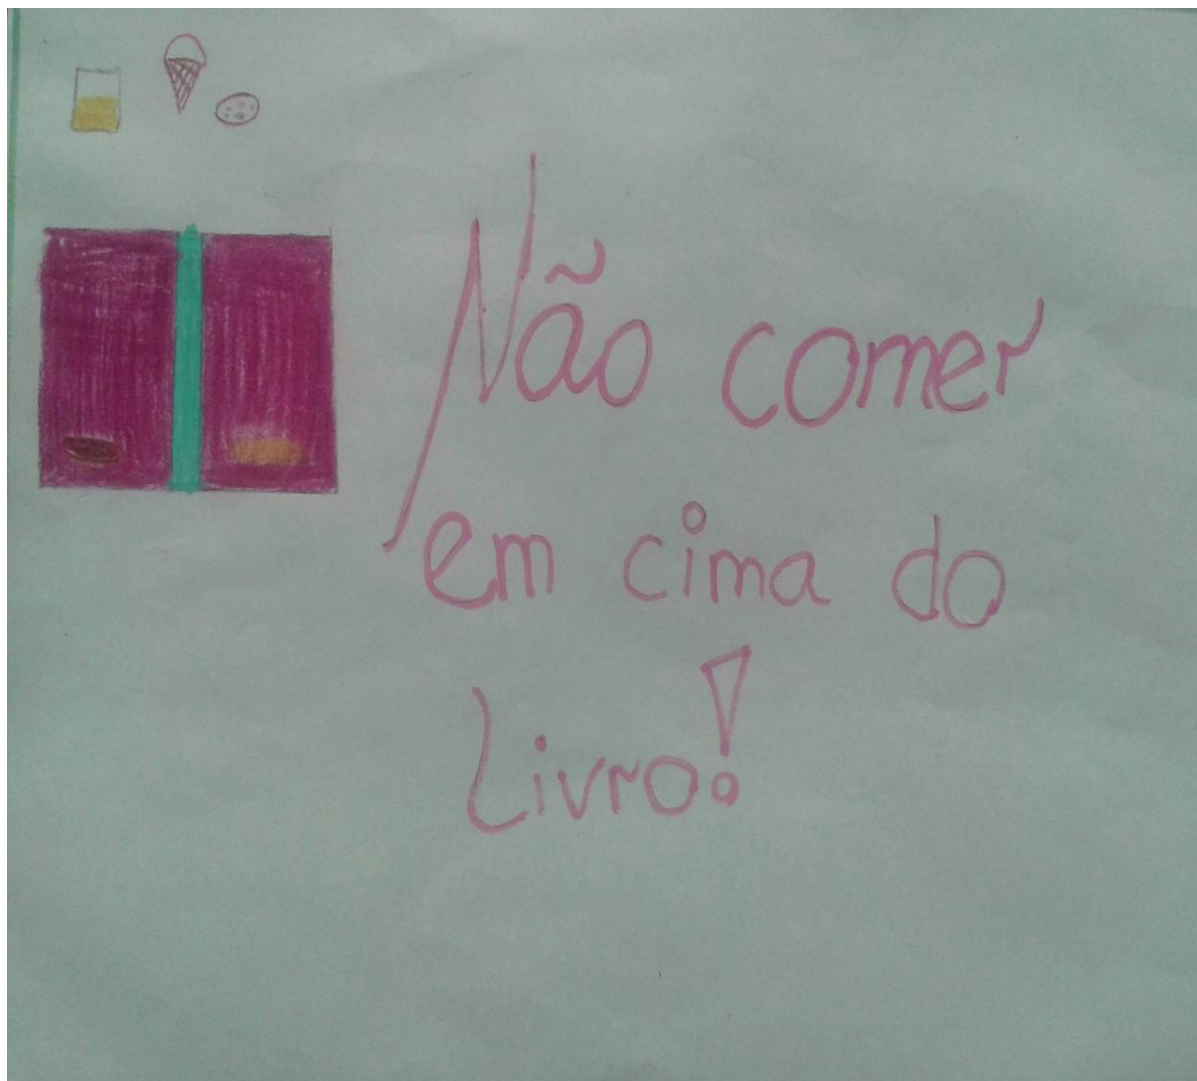 Não comer
em cima do
Livro!